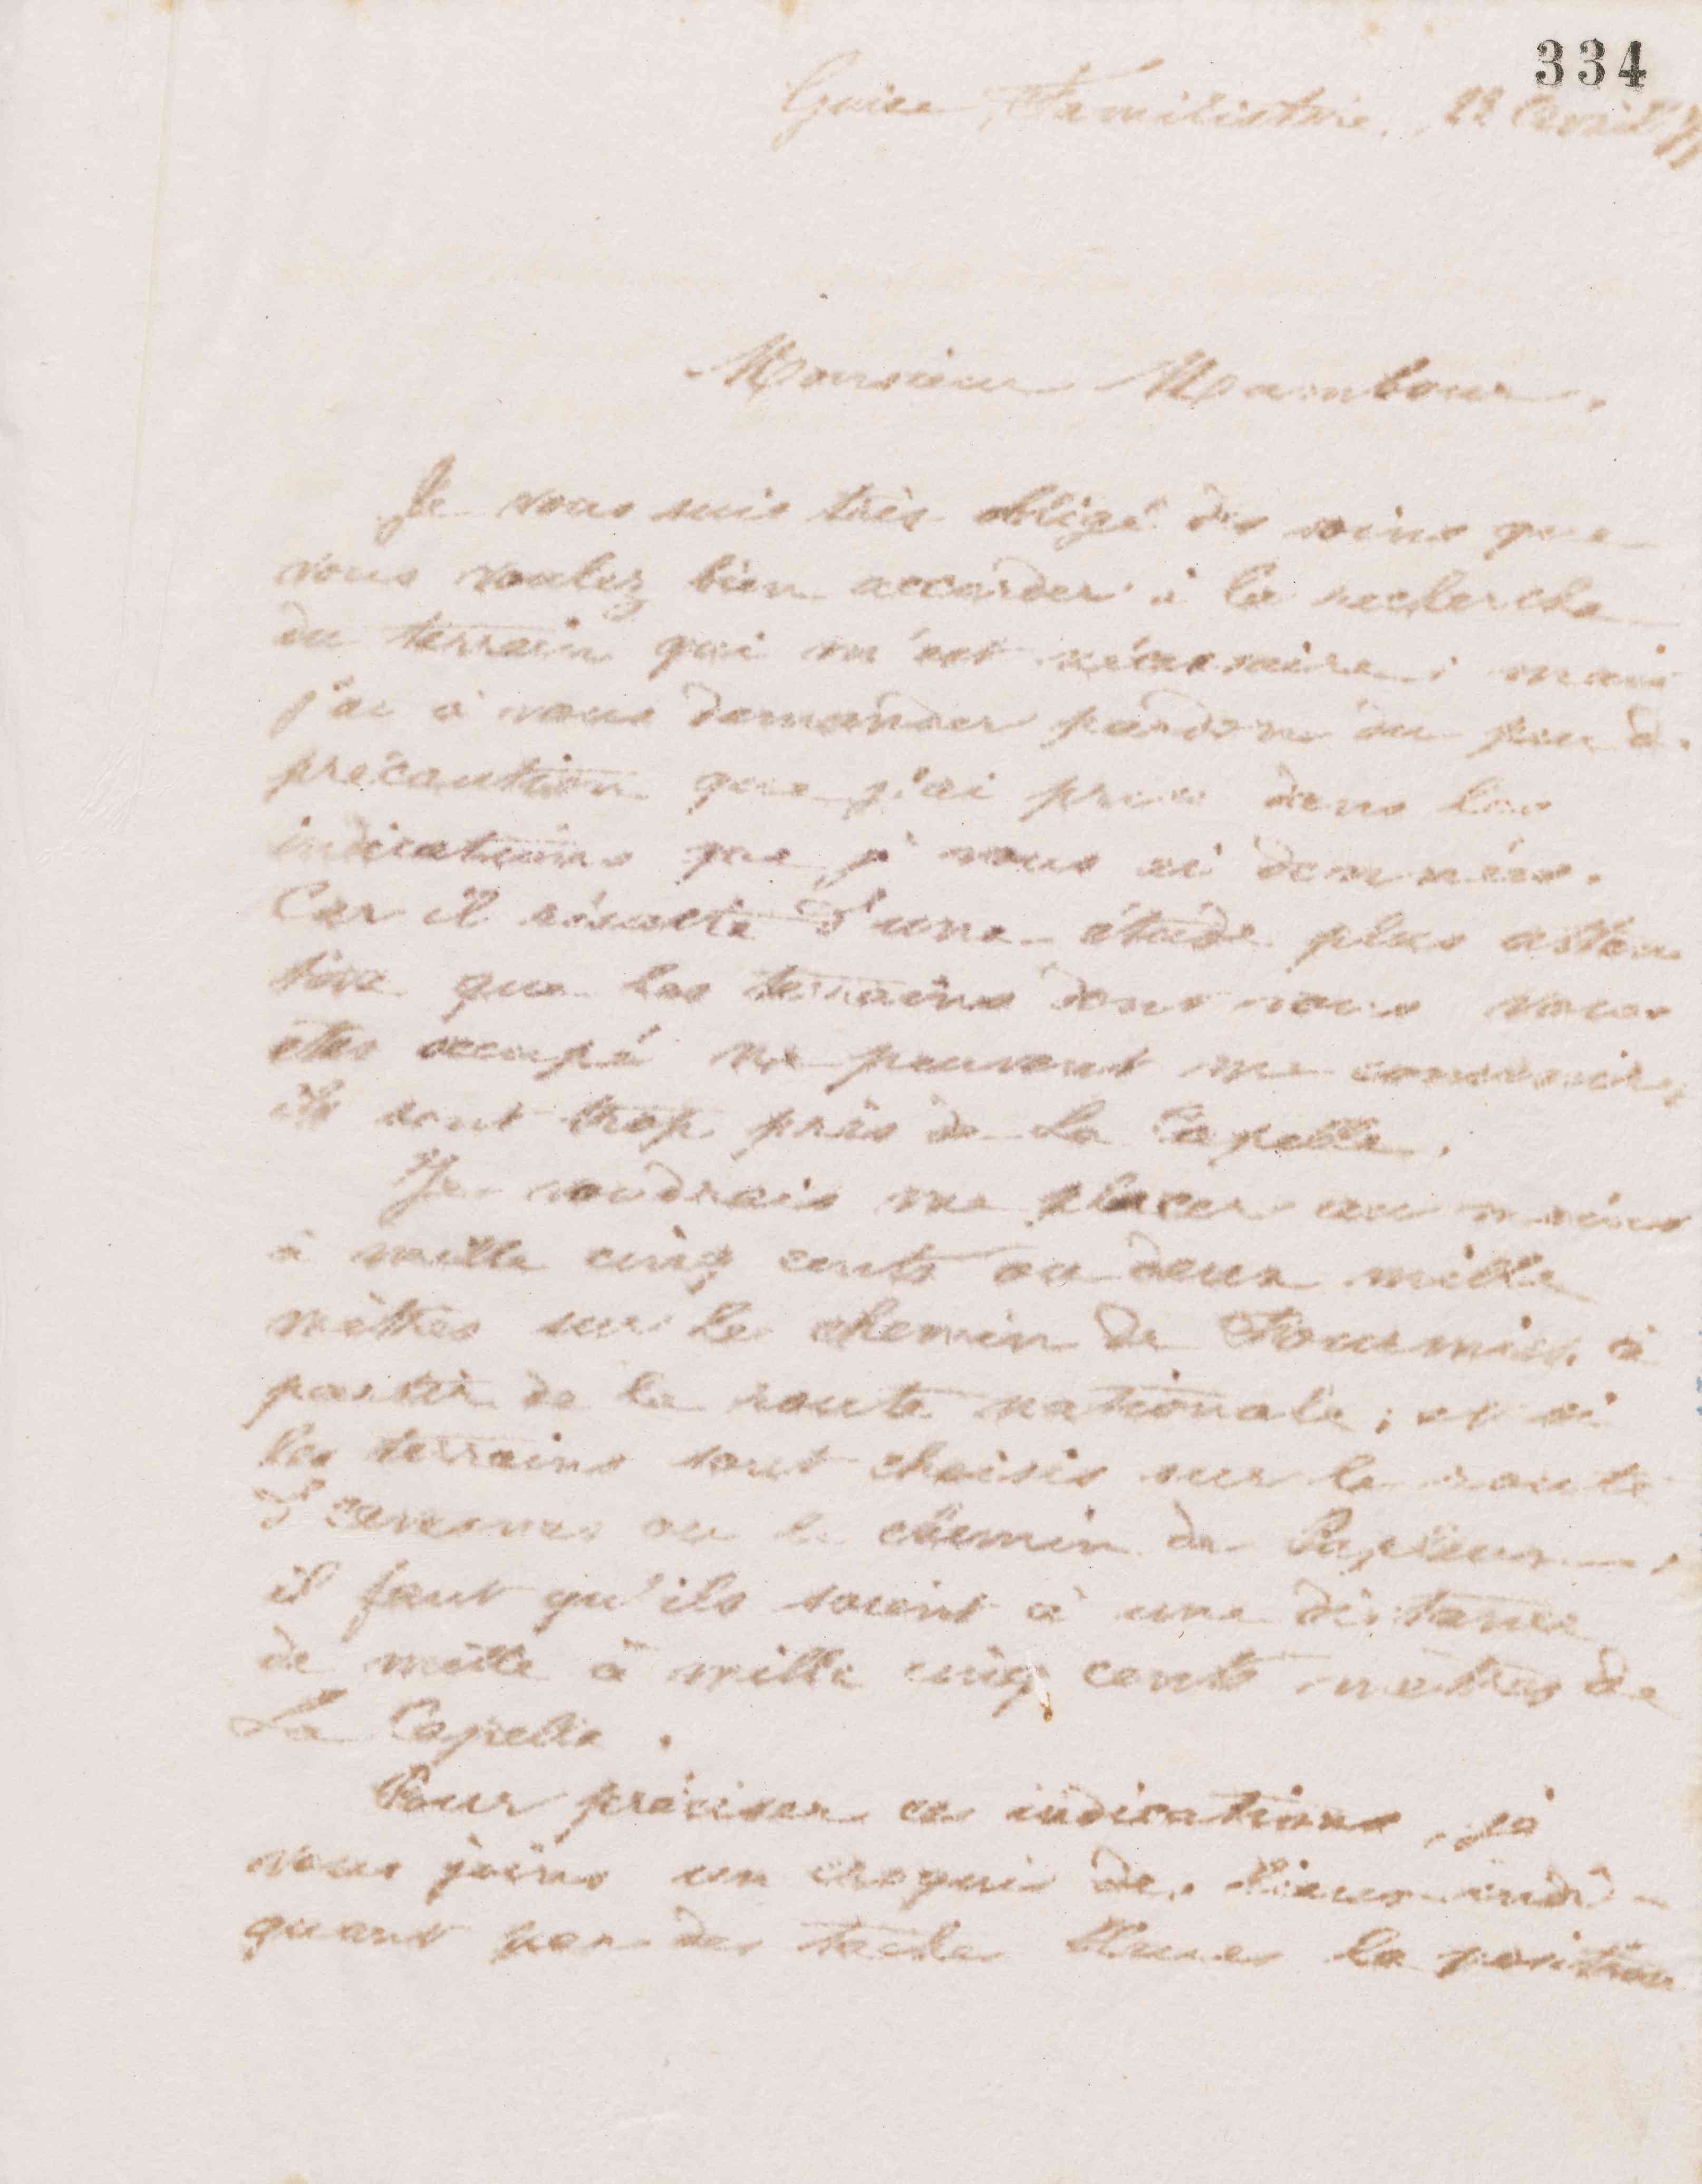 334
Guise Familistère, 22 Avril
Monsieur Mambour,
Je vous suis très obligé des soins que
vous voulez bien accorder à la recherche
du terrain qui m'est nécessaire; mais
j'ai à vous demander pardon du peu de
précaution que j'ai prise dans les
indications que je vous ai données.
Car il résulte d'une étude plus atten
tive que les terrains dont vous vous
êtes occupé ne peuvent me convenir,
ils sont trop près de La Capelle.
Je voudrais me placer au moins
à mille cinq cents ou deux mille
mètres sur le chemin de Fourmies, à
partir de la route nationale; et si
les terrains sont choisis sur la route
d'avesnes ou le chemin de Papleux,
il faut qu'ils soient à une distance
de mille à mille cinq cents mètres de
La Capelle.
Pour préciser ces indications, je
vous joins un croquis des lieux indi-
quant par des taches bleues la position